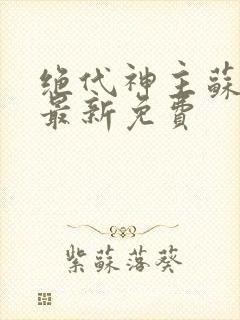 绝代神主蘇
最新免費
紫蘇落葵